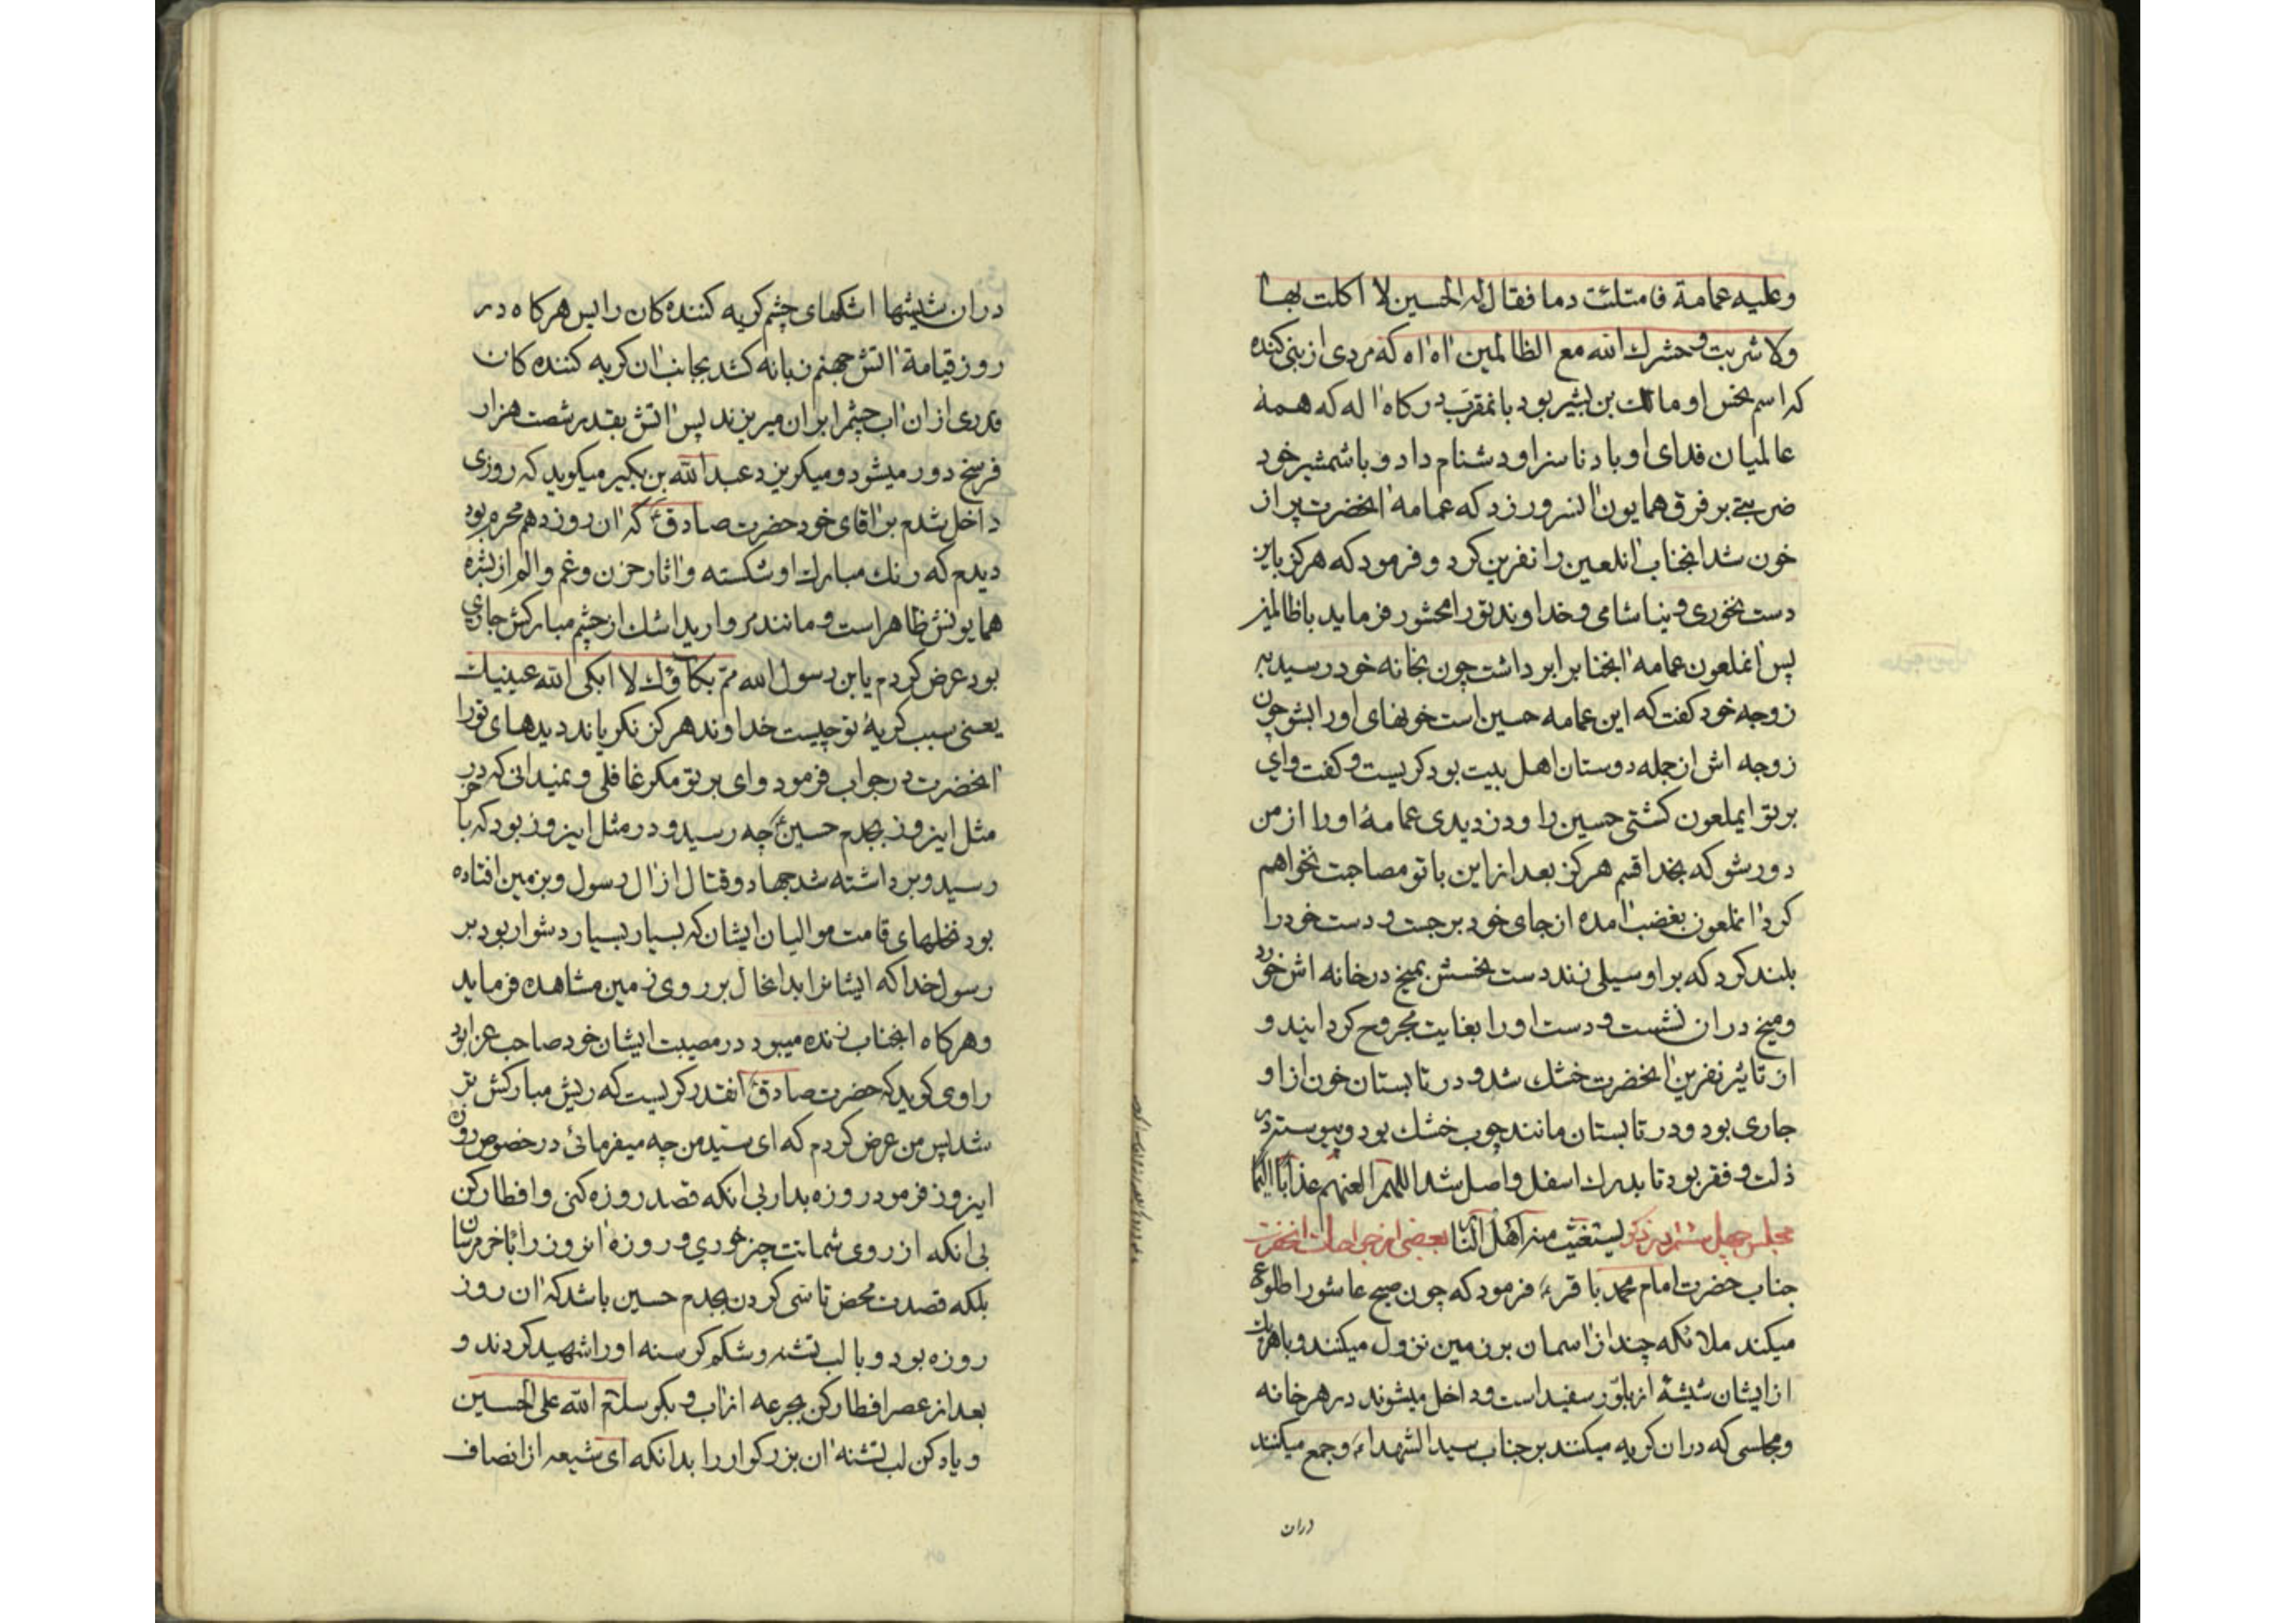 وعلیه عمامة فامتلئت دما فقال له الحسین لا اکلت بها
ولا شربت وحشرك الله مع الظالمین اه اه که مردی از بنی کنده
که اسم نحس او مالك بن بشیر بود بانمقرب درکاه اله که همه
عالمیان فدای او باد ناسزا و دشنام داد و باشمشیر خود
ضربتی بر فرق همایون انسرور زد که عمامه انحضرت پر از
خون شد انجناب انلعین را نفرین کرد و فرمود که هرکز باین
دست نخوری و نیاشامی و خداوند تورا محشور فرماید باظالمین
پس انملعون عمامه انجنابرا برداشت چون بخانه خود رسید به
زوجه خود کفت که این عمامه حسین است خونهای اورا بشو چون
زوجه اش ازجمله دوستان اهل بیت بود کریست و کفت وای
بر تو ایملعون کشتی حسین را و دزدیدی عمامهٔ اورا از من
دور شو که بخدا قسم هرکز بعد از این با تو مصاحبت نخواهم
کرد انملعون بغضب امده از جای خود برجست و دست خودرا
بلند کرد که بر او سیلی زند دست نحسش بمیخ در خانه اش خورد
ومیخ دران نشست و دست اورا بغایت مجروح کردانید و
از تاثیر نفرین انحضرت خشك شد و در تابستان خون از او
جاری بود و در تابستان مانند چوب خشك بود و پیوسته در
ذلت و فقر بود تا بدرك اسفل واصل شد اللهم العنهم عذابا الیما
مجلس چهل ششم در ذکر یستغیث منه اهل النار بعضی از جراحات انحضرت
جناب حضرت امام محمد باقر ع فرمود که چون صبح عاشورا طلوع
میکند ملائکه چند از اسمان بر زمین نزول میکنند و با هریك
از ایشان شیشهٔ از بلور سفید است و داخل میشوند در هر خانه
و مجالسی که دران کریه میکنند بر جناب سید الشهداء و جمع میکنند
دران
دران شیشها اشکهای چشم کریه کننده کان را پس هرکاه در
روز قیامة اتش جهنم زبانه کشد بجانب ان کریه کننده کان
قدری از ان اب چشمرا بران میریزند پس اتش بقدر شصت هزار
فرسخ دور میشود و میکریزد عبد الله بن بکیر میکوید که روزی
داخل شدم بر اقای خود حضرت صادق ع که ان روز دهم محرم بود
دیدم که رنك مبارك او شکسته و اثار حزن و غم و الم از بشره
همایونش ظاهر است و مانند مروارید اشك از چشم مبارکش جاری
بود عرض کردم یابن رسول الله مم بکاؤك لا ابکی الله عینیك
یعنی سبب کریهٔ تو چیست خداوند هرکز نکریاند دیدهای تورا
انحضرت در جواب فرمود وای بر تو مکر غافلی و نمیدانی که در
مثل اینروز بجدم حسین چه رسید و در مثل اینروز بود که با خر
رسید و برداشته شد جهاد و قتال از ال رسول و بزمین افتاده
بود نخلهای قامت موالیان ایشان که بسیار بسیار دشوار بود بر
رسول خدا که ایشانرا بدانحال بر روی زمین مشاهده فرماید
و هرکاه انجناب زنده میبود در مصیبت ایشان خود صاحب عزا بود
راوی کوید که حضرت صادق ع انقدر کریست که ریش مبارکش تر
شد پس من عرض کردم که ای سید من چه میفرمائی در خصوص روزه
اینروز فرمود روزه بدار بی انکه قصد روزه کنی و افطار کن
بی انکه از روی شماتت چیز خوری و روزه انروز را باخر مرسان
بلکه قصدت محض تاسی کردن بجدم حسین باشد که ان روز
روزه بود و با لب تشنه و شکم کرسنه اورا شهید کردند و
بعد از عصر افطار کن بجرعه از اب و بکو سلام الله علی الحسین
و یاد کن لب تشنه ان بزرکوار را بدانکه ای شیعه از انصاف